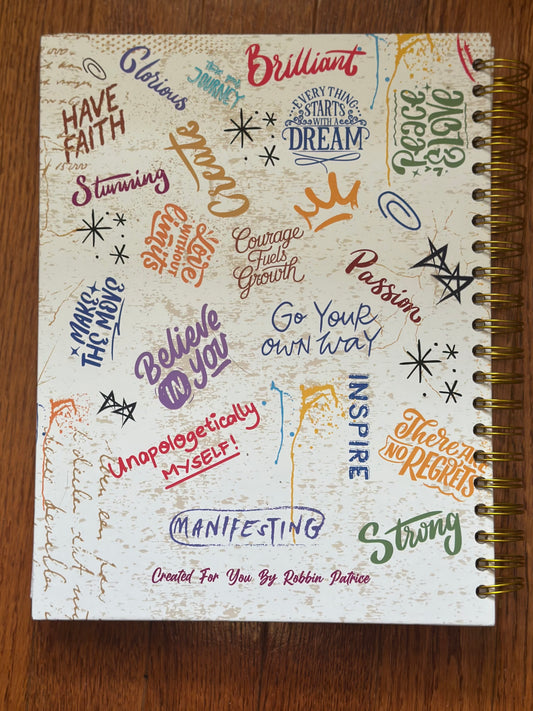 Glorious
THIS IS MY
JOURNEY
Brilliant
HAVE
FAITH
Create
EVERYTHING
STARTS
WITH A
DREAM
Peace
& LOVE
Stunning
Love
WITHOUT
Limits
Courage
Fuels
Growth
Passion
MAKE
THE MOVE
Believe
IN YOU
Go Your
OWN WAY
INSPIRE
Unapologetically
MYSELF!
There Are
NO REGRETS
MANIFESTING
Strong
Created For You By Robbin Patrice